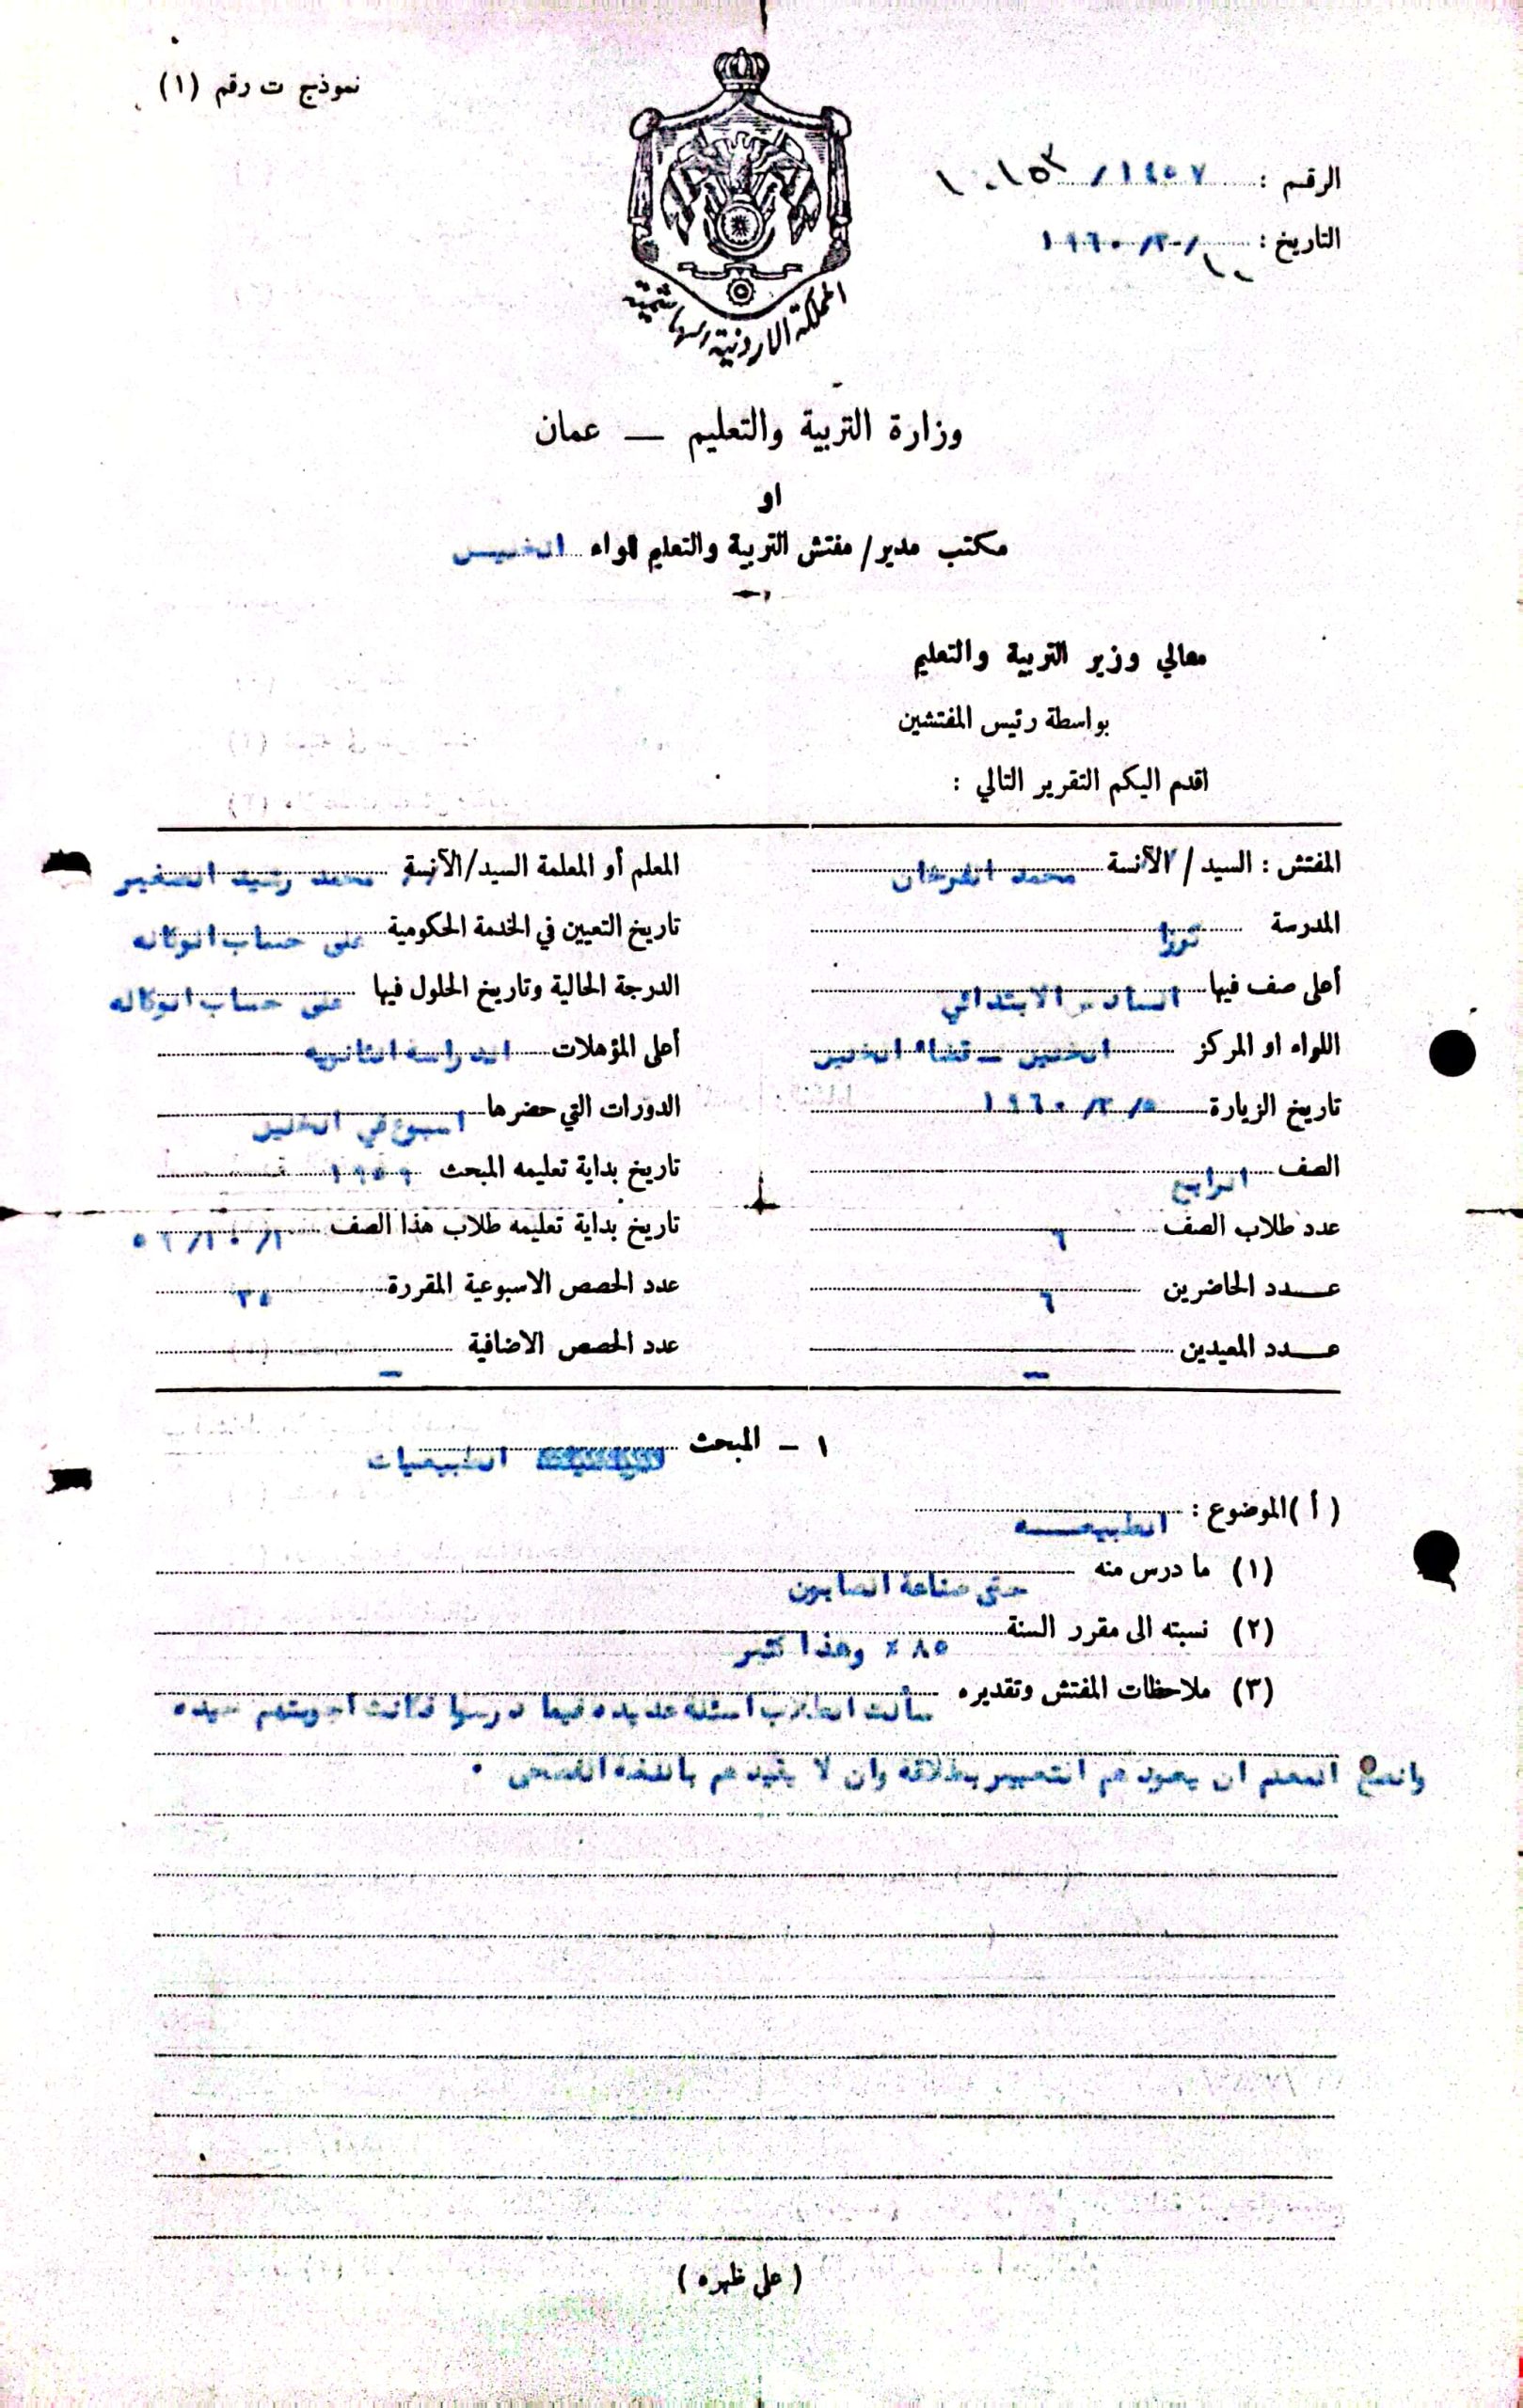 نموذج ت رقم (١)
الرقم : ١٤٥٧/ ١٠١٥٣
التاريخ : ١٠/٢/١٩٦٠
المملكة الاردنية الهاشمية
وزارة التربية والتعليم — عمان
او
مكتب مدير/ مفتش التربية والتعليم لواء الخليل
معالي وزير التربية والتعليم
بواسطة رئيس المفتشين
اقدم اليكم التقرير التالي :
المفتش : السيد / الآنسة محمد
المعلم أو المعلمة السيد/الآنسة محمد رشيد الصغير
المدرسة
تاريخ التعيين في الخدمة الحكومية على حساب الوكاله
أعلى صف فيها السادس الابتدائي
الدرجة الحالية وتاريخ الحلول فيها على حساب الوكاله
اللواء او المركز الخليل — قضاء الخليل
أعلى المؤهلات الدراسه الثانويه
تاريخ الزيارة ٥/٢/١٩٦٠
الدورات التي حضرها اسبوع في الخليل
الصف الرابع
تاريخ بداية تعليمه المبحث ١٩٥٩
عدد طلاب الصف ٦
تاريخ بداية تعليمه طلاب هذا الصف
عدد الحاضرين ٦
عدد الحصص الاسبوعية المقررة ٣٥
عدد المعيدين —
عدد الحصص الاضافية —
١ – المبحث الطبيعيات
( أ )الموضوع : الطبيعـــه
(١) ما درس منه حتى صناعة الصابون
(٢) نسبته الى مقرر السنة ٨٥ ٪ وهذا كثير
(٣) ملاحظات المفتش وتقديره سألت الطلاب اسئله عديده فيما درسوا فكانت اجوبتهم جيده
وانصح المعلم ان يعودهم التعبير بطلاقه وان لا يقيدهم باللغه الفصحى .
( على ظهره )